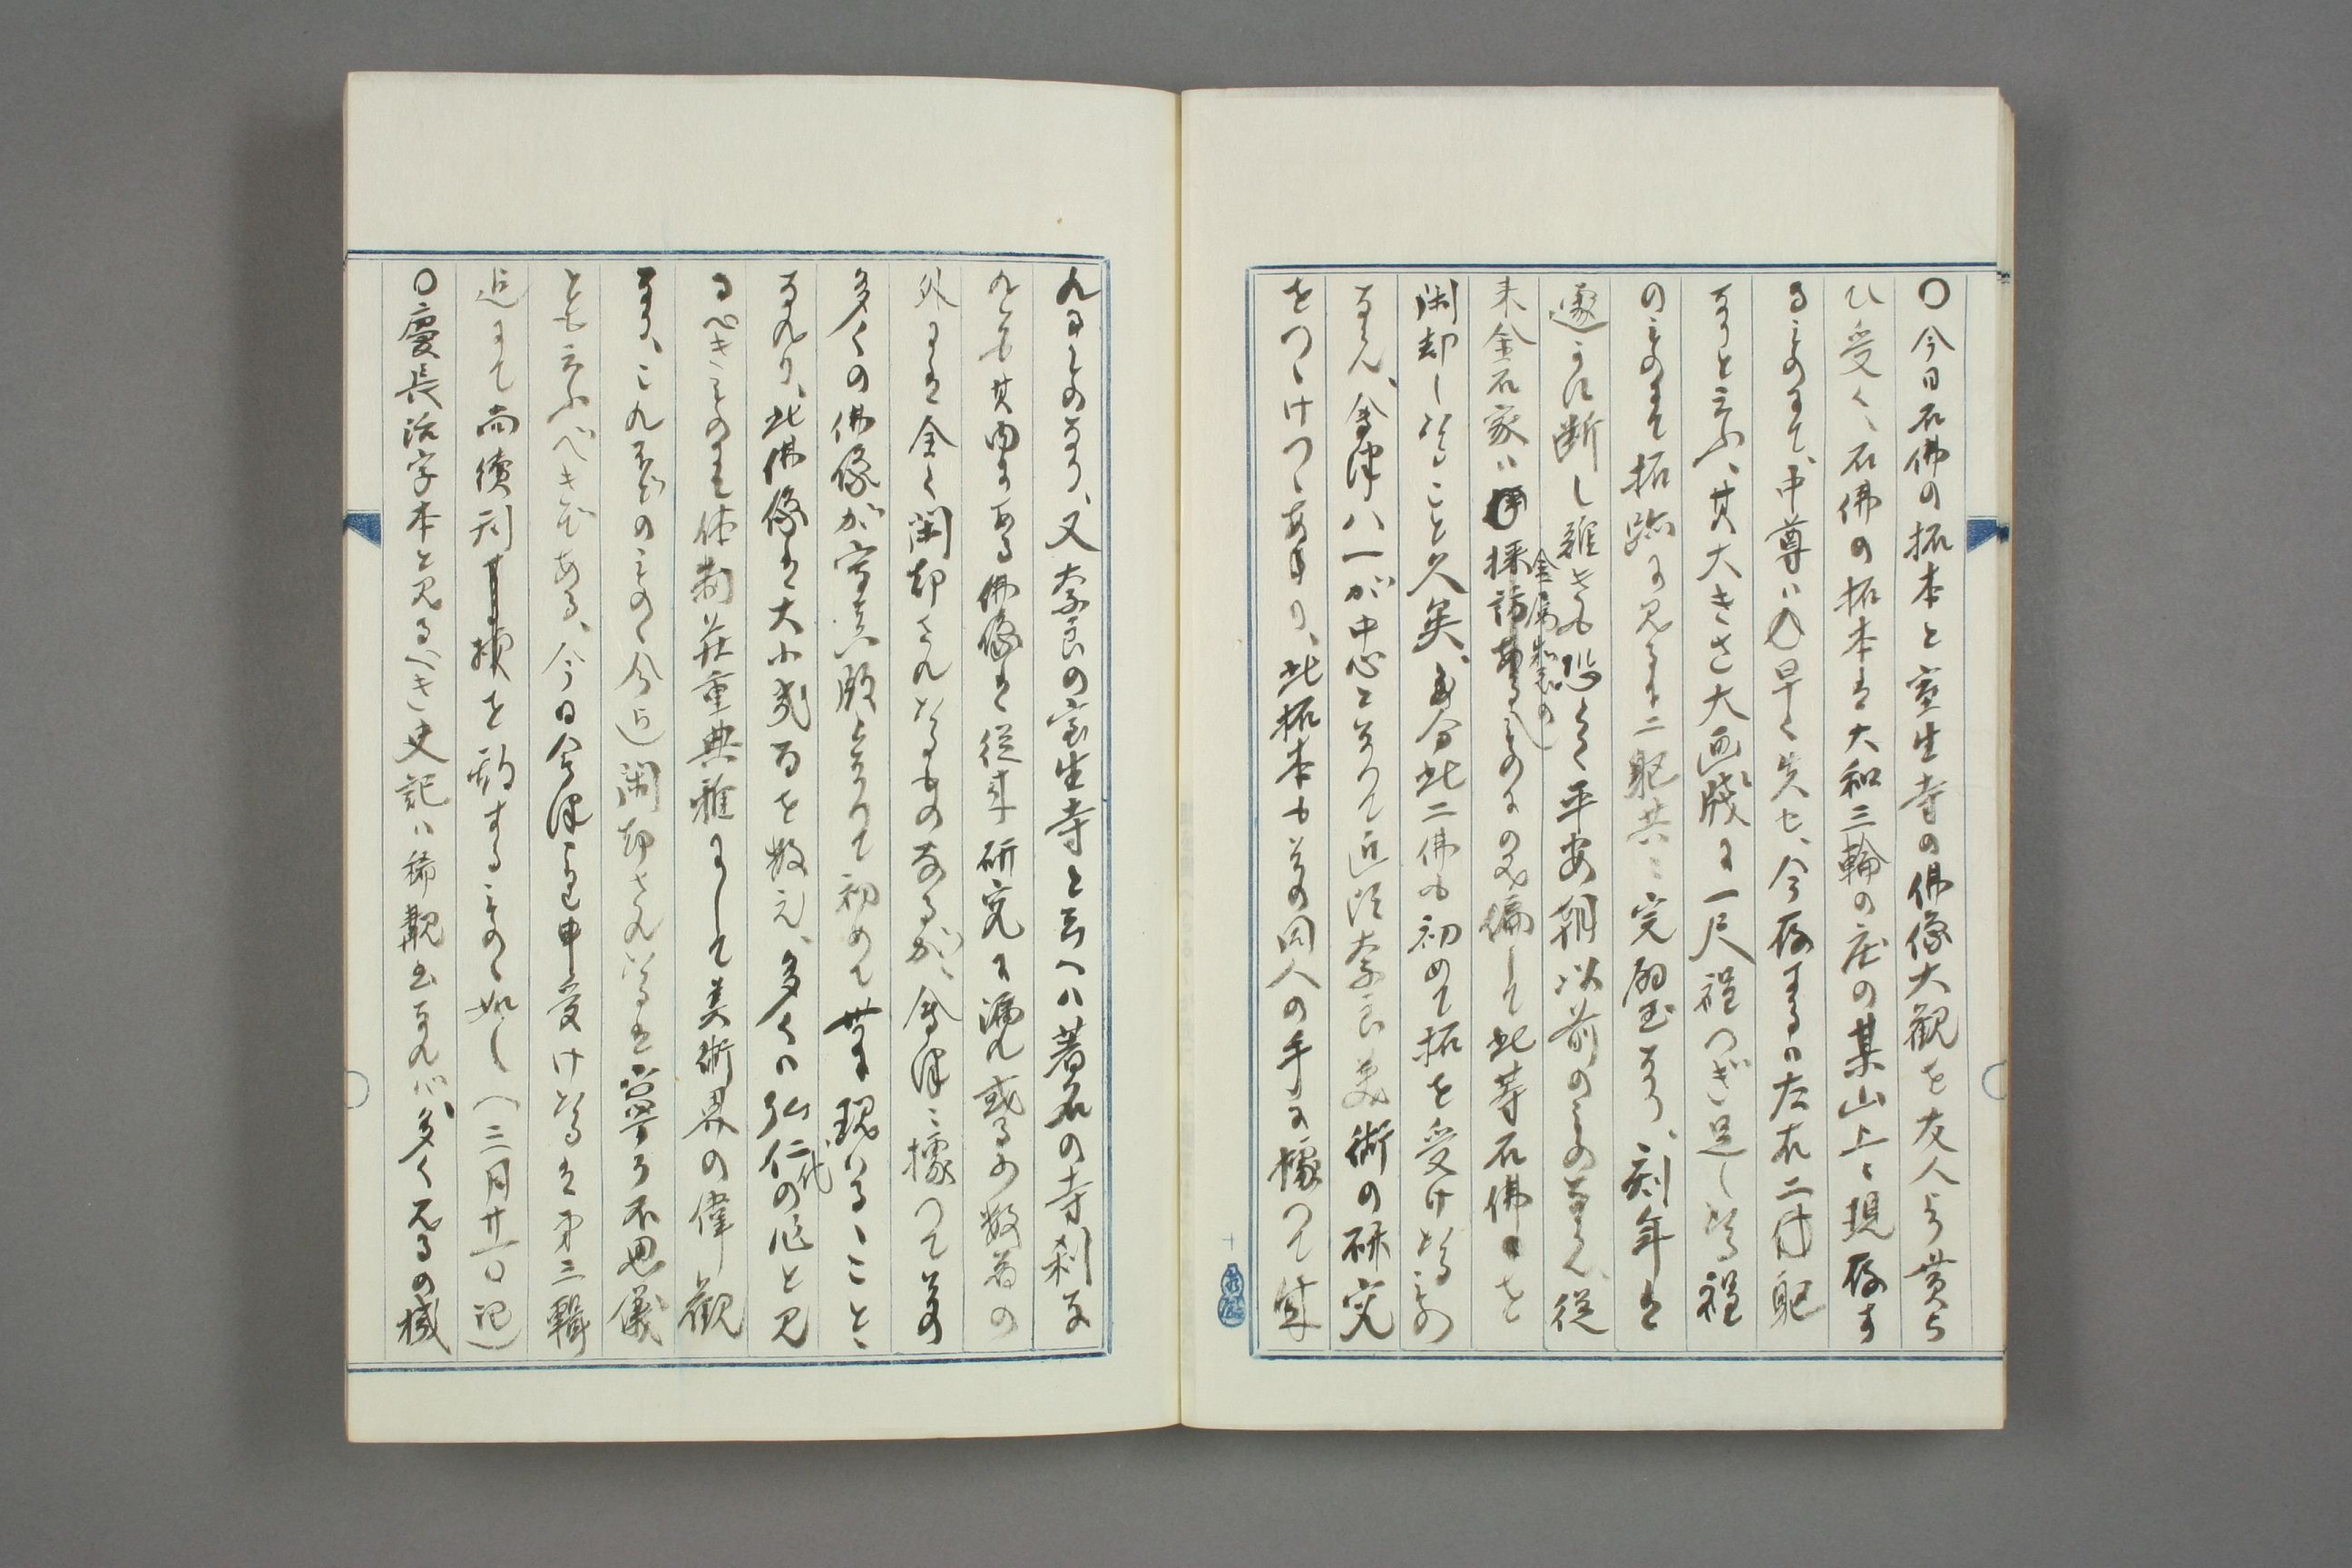 〇今日石佛の拓本と室生寺の佛像大觀を友人より貰ら
ひ受く、石佛の拓本は大和三輪の庄の某山上に現存す
るものにて、中尊ハ早く失せ、今存するの左右二躯
なりと云ふ、其大きさ大画牋に一尺程つぎ足したる程
のものにて拓跡に見るに二躯共に完璧なり、刻年は
遽かに断し難きも恐らく平安朝以前のものならん、従
来金石家ハ採訪金属製のものにのみ偏して此等石佛を
閑却したること久矣、多分此二佛も初めて拓を受けたるもの
ならん、會津八一が中心となりて近頃奈良美術の研究
をつゝけつゝあり、此拓本も其の同人の手に據つて成
れるものなり、又奈良の室生寺と云へハ著名の寺刹な
れども其内にある佛像は従来研究に漏れ或る少数者の
外には全く閑却されたるものなるが、會津に據つて其の
多くの佛像が寫真版となりて初めて世に現はるゝこと
なれり、此佛像は大小或百を数え、多くの弘仁代の作と見
るべきものにて体制莊重典雅にして美術界の偉觀
なり、これ等のものゝ今迄閑却されたるは寧ろ不思儀
とも云ふべきである、今日會津より申受けたるは第三輯
迄にて尚續刊するものゝ如し（三月廿日記）
〇慶長活字本と見るべき史記ハ稀覯書なれバ多く見るの機